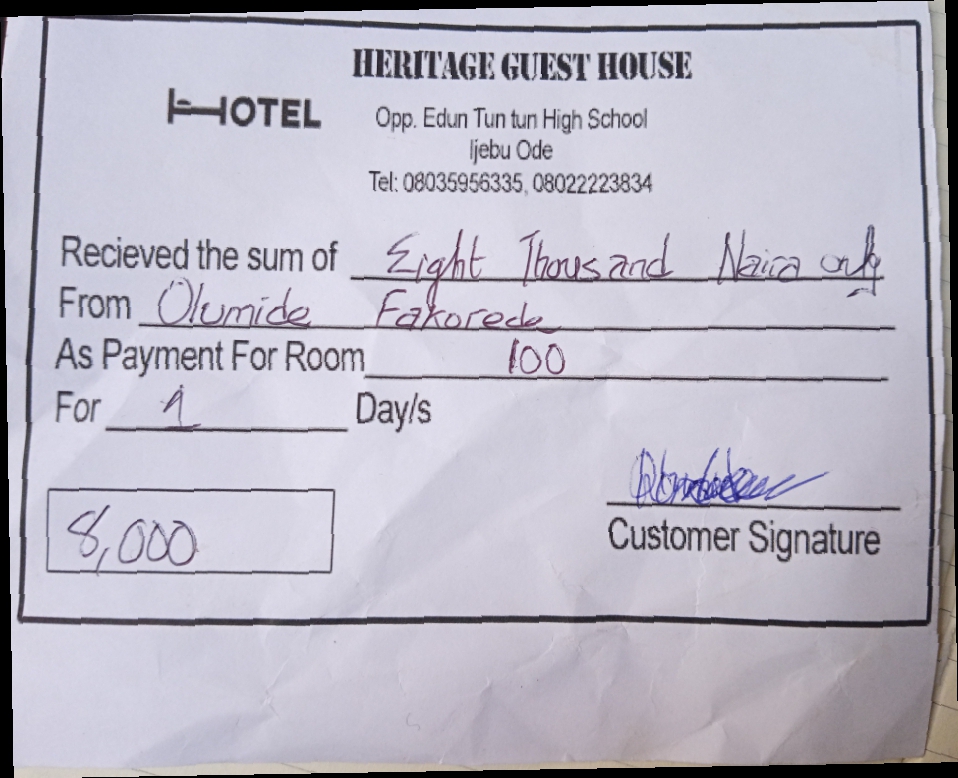 HERITAGE GUEST HOUSE
HOTEL
Opp. Edun Tun tun High School
Ijebu Ode
Tel: 08035956335, 08022223834
Recieved the sum of Eight Thousand Naira only
From Olumide Fakorede
As Payment For Room 100
For 1 Day/s
8,000
Customer Signature